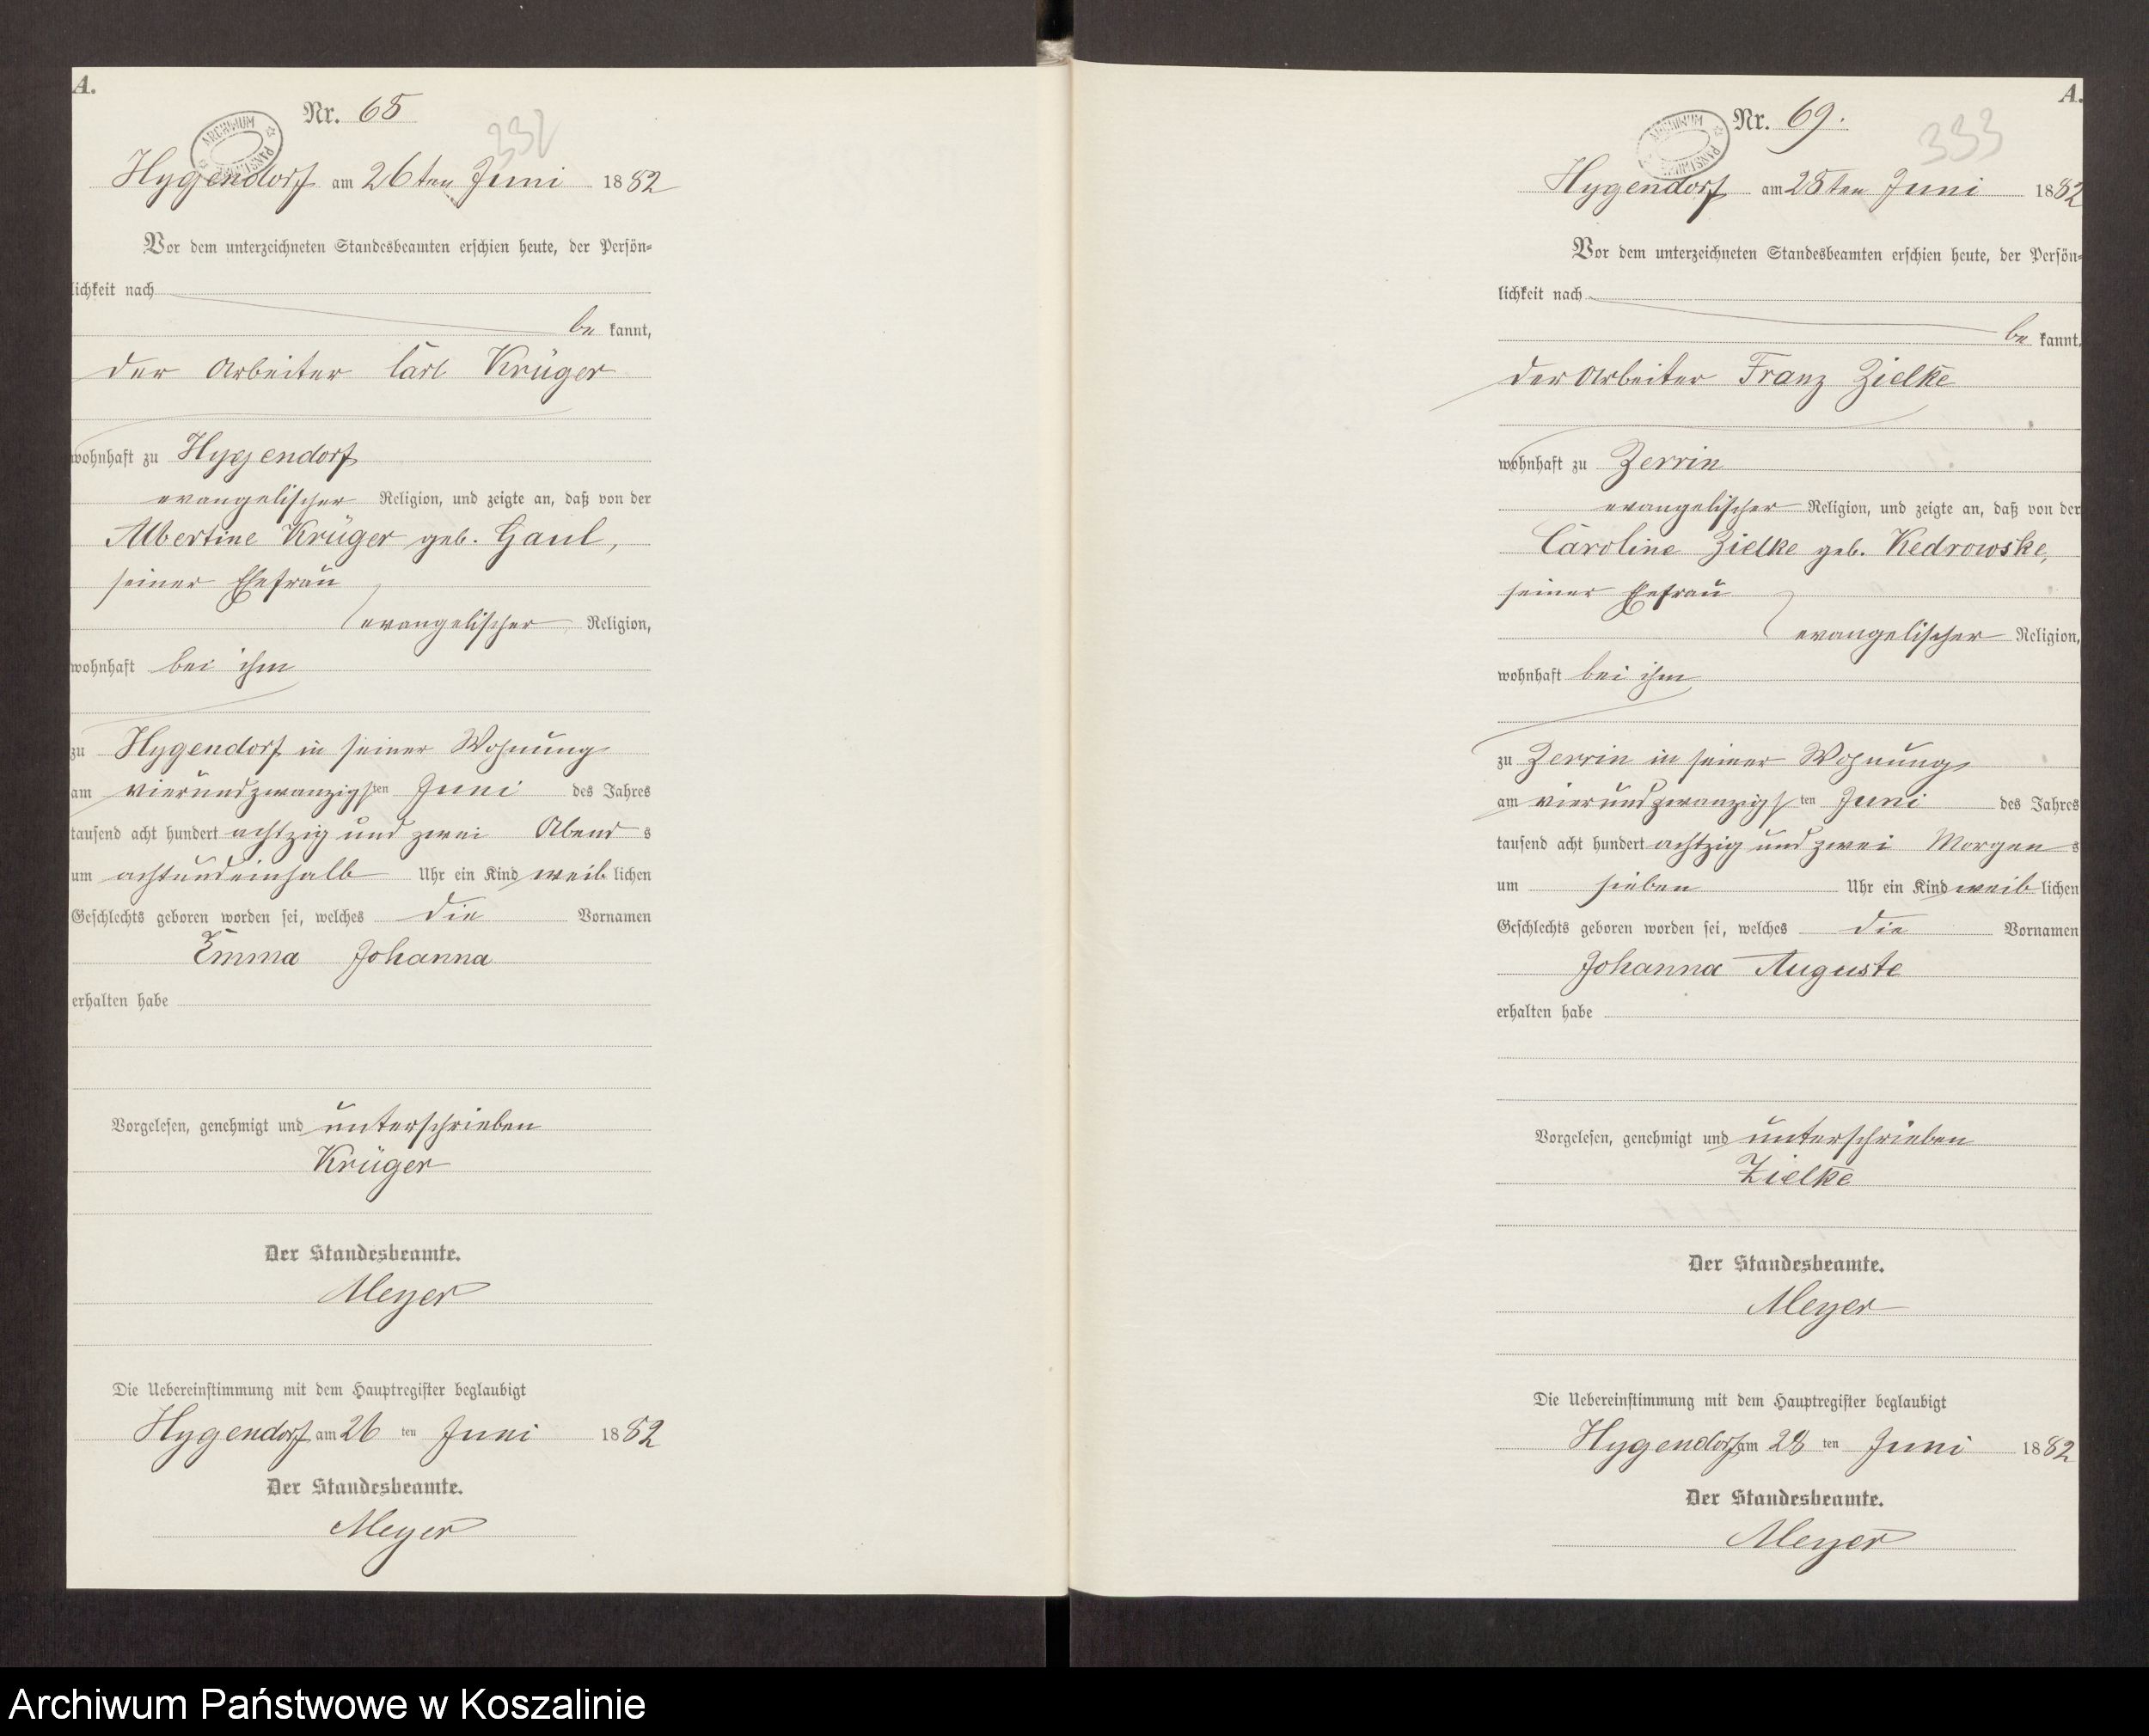 A.
Nr. 68
332
ARCHIWUM PAŃSTWOWE
Hygendorf am 26ten Juni 1882
Vor dem unterzeichneten Standesbeamten erschien heute, der Persön-
lichkeit nach
be kannt,
der Arbeiter Carl Krüger
wohnhaft zu Hygendorf
evangelischer Religion, und zeigte an, daß von der
Albertine Krüger geb. Gaul,
seiner Ehefrau
evangelischer Religion,
wohnhaft bei ihm
zu Hygendorf in seiner Wohnung
am vierundzwanzigsten Juni des Jahres
tausend acht hundert achtzig und zwei Abends
um achtundeinhalb Uhr ein Kind weiblichen
Geschlechts geboren worden sei, welches die Vornamen
Emma Johanna
erhalten habe
Vorgelesen, genehmigt und unterschrieben
Krüger
Der Standesbeamte.
Meyer
Die Uebereinstimmung mit dem Hauptregister beglaubigt
Hygendorf am 26ten Juni 1882
Der Standesbeamte.
Meyer
A.
Nr. 69.
333
ARCHIWUM PAŃSTWOWE
Hygendorf am 28ten Juni 1882
Vor dem unterzeichneten Standesbeamten erschien heute, der Persön-
lichkeit nach
be kannt,
der Arbeiter Franz Zielke
wohnhaft zu Zerrin
evangelischer Religion, und zeigte an, daß von der
Caroline Zielke geb. Kedrowske,
seiner Eefrau
evangelischer Religion,
wohnhaft bei ihm
zu Zerrin in seiner Wohnung
am vierundzwanzigsten Juni des Jahres
tausend acht hundert achtzig und zwei Morgens
um sieben Uhr ein Kind weiblichen
Geschlechts geboren worden sei, welches die Vornamen
Johanna Auguste
erhalten habe
Vorgelesen, genehmigt und unterschrieben
Zielke
Der Standesbeamte.
Meyer
Die Uebereinstimmung mit dem Hauptregister beglaubigt
Hygendorf am 28ten Juni 1882
Der Standesbeamte.
Meyer
Archiwum Państwowe w Koszalinie